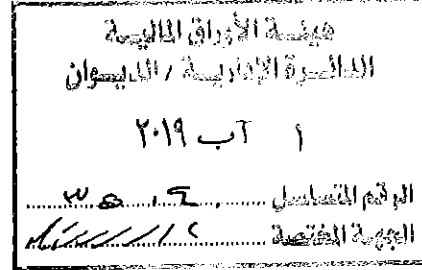 هيئة الأوراق المالية
الدائرة الإدارية / الديوان
١ آب ٢٠١٩
الرقم المتسلسل
الجهة المختصة